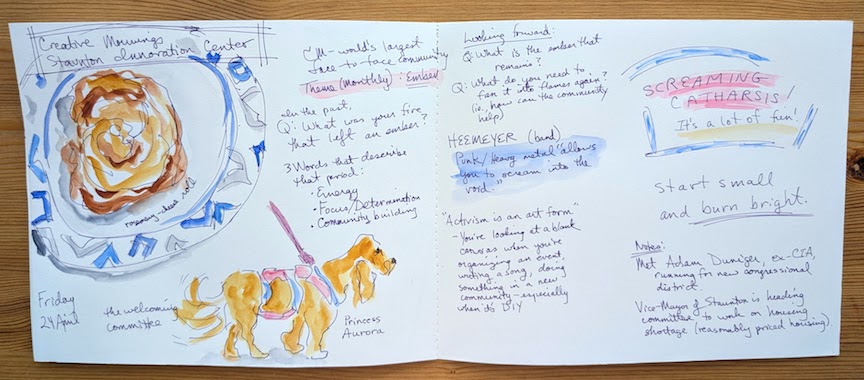 Creative Mornings
Staunton Innovation Center
rosemary-cheese roll
Friday
24 April
the welcoming
committee
Princess
Aurora
CM - world's largest
face-to-face community
Theme (monthly): Ember
In the past,
Q: What was your fire
that left an ember?
3 Words that describe
that period:
• Energy
• Focus/Determination
• Community building
Looking forward:
Q: What is the ember that
remains?
Q: What do you need to
fan it into flames again?
(ie, how can the community
help)
HEEMEYER (band)
Punk/Heavy metal "allows
you to scream into the
void."
"Activism is an art form"
- You're looking at a blank
canvas when you're
organizing an event,
writing a song, doing
something in a new
community - especially
when it's DIY
SCREAMING
CATHARSIS!
It's a lot of fun!
Start small
and burn bright.
Notes:
Met Adam Duniger, ex-CIA,
running for new congressional
district.
Vice-Mayor of Staunton is heading
committee to work on housing
shortage (reasonably priced housing).